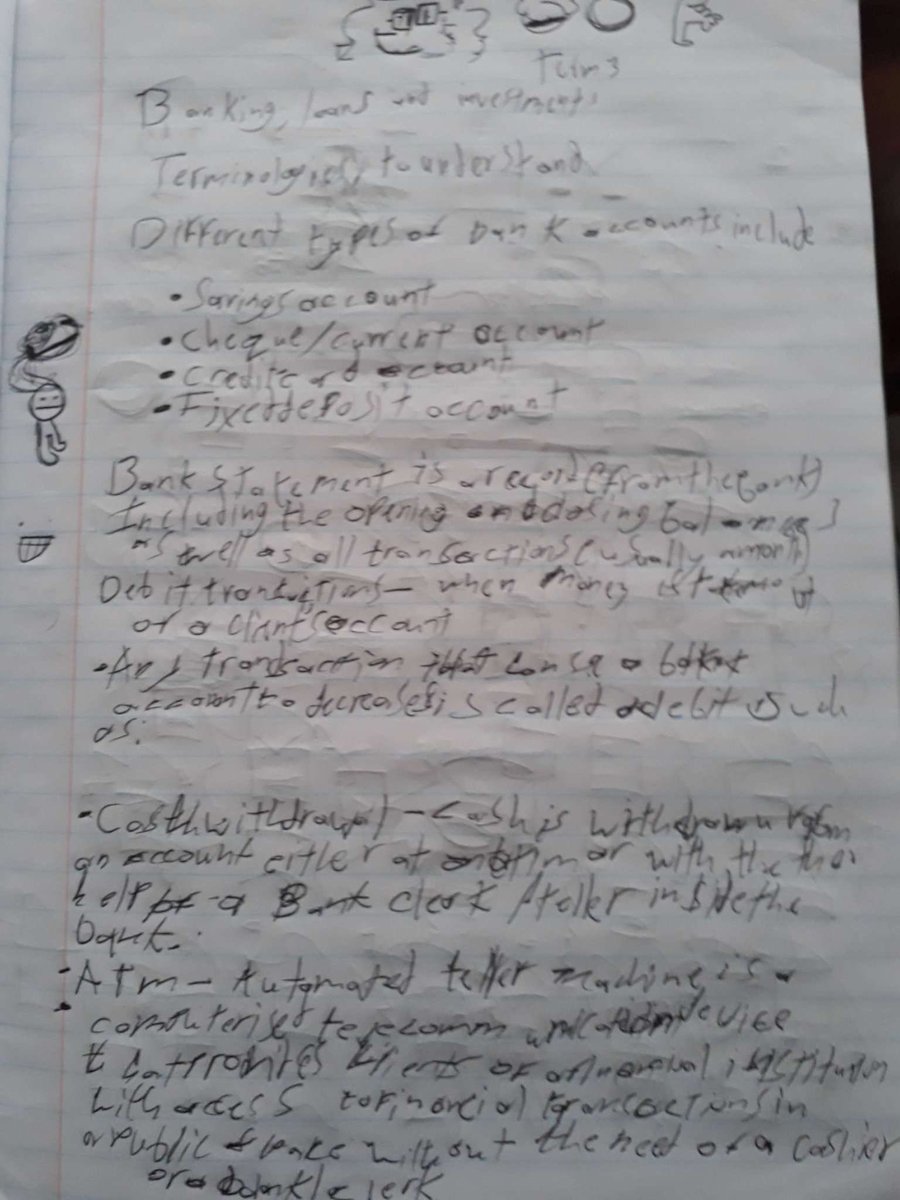 Term 3
Banking, loans and investments
Terminologies to understand
Different types of bank accounts include
• Savings account
• Cheque/current account
• Credit card account
• Fixed deposit account
Bank statement is a record (from the bank)
Including the opening and closing balances
as well as all transactions (usually a month)
Debit transactions – when money is
of a clients account
• Any transaction that a
account to decrease is called a debit such
as:
• Cash withdrawal – cash is withdrawn from
an account either at an atm or with the
help of a Bank clerk / teller inside the
bank.
• ATM – Automated teller machine is a
• computerised telecommunication device
that provides clients of a financial institution
with access to financial transactions in
a public space without the need of a cashier
or a bank clerk